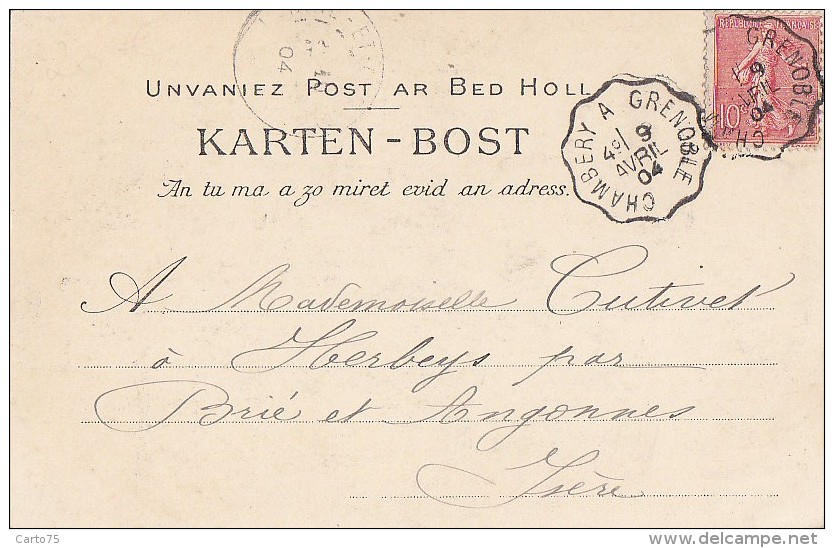 UNVANIEZ POST AR BED HOLL
KARTEN-BOST
An tu ma a zo miret evid an adress.
CHAMBERY A GRENOBLE
9
AVRIL
04
GRENOBLE
9
04
RÉPUBLIQUE FRANÇAISE
10
04
A Mademoiselle Cutivet
à Herbeys par
Brié et Angonnes
Isère
Carto75
www.delcampe.net